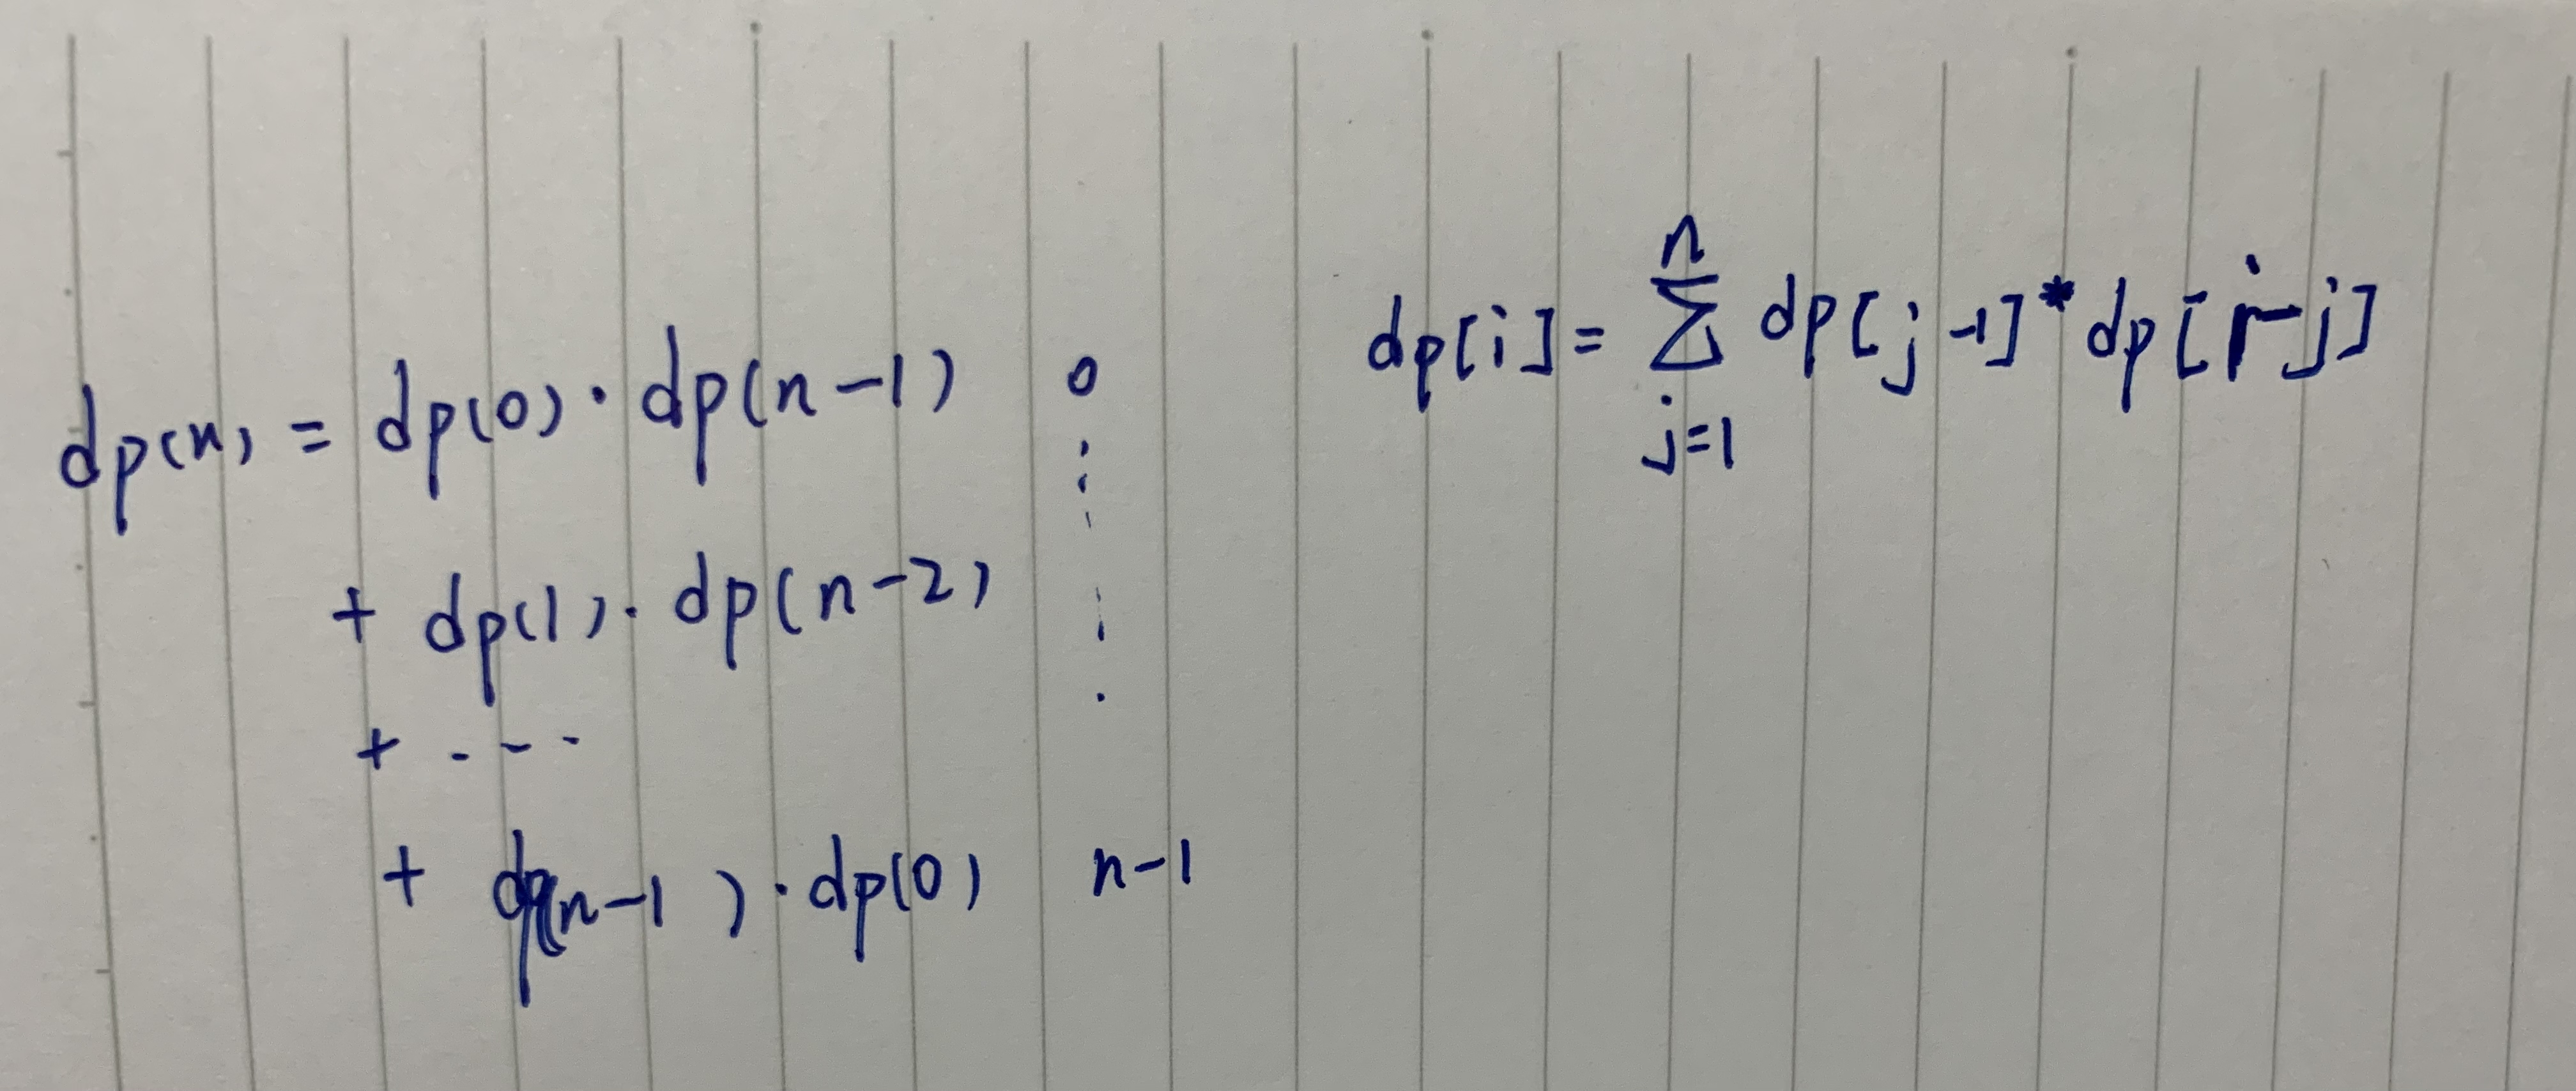 dp(n) = dp(0) · dp(n-1) 0
+ dp(1) · dp(n-2)
+ ---
+ dp(n-1) · dp(0) n-1
dp[i] = n∑j=1 dp[j-1] * dp[i-j]